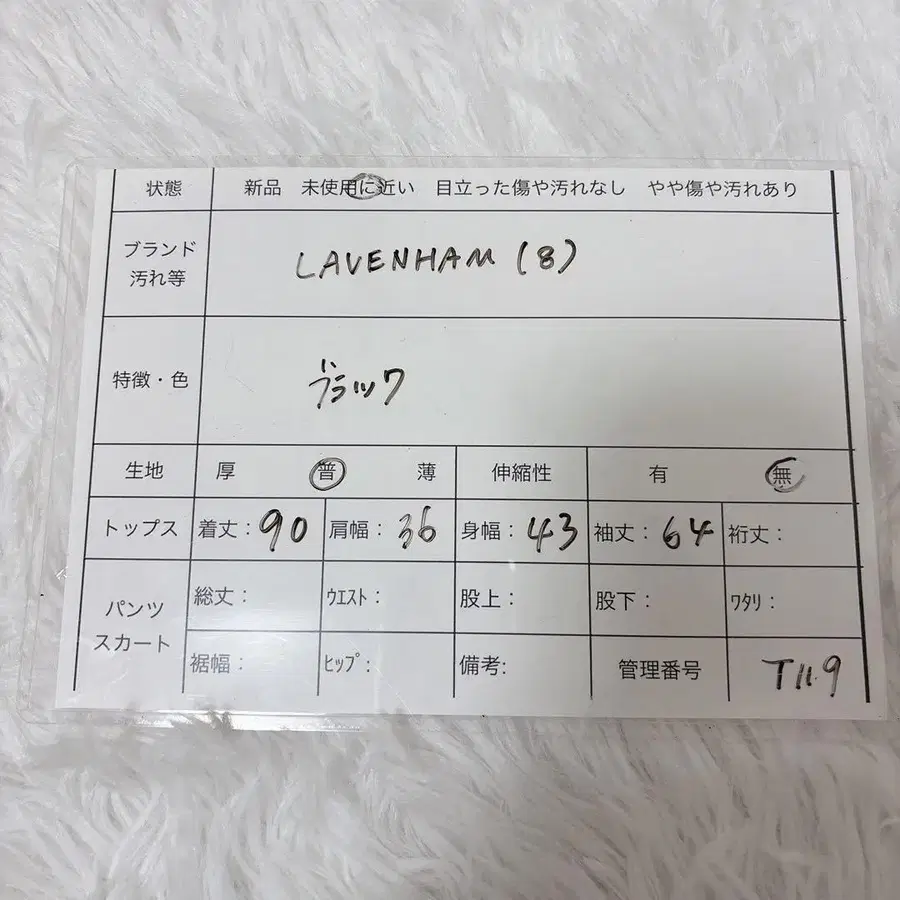 状態 新品 未使用に近い 目立った傷や汚れなし やや傷や汚れあり
ブランド
汚れ等
LAVENHAM (8)
特徴・色 ブラック
生地 厚 普 薄 伸縮性 有 無
トップス 着丈：90 肩幅：36 身幅：43 袖丈：64 裄丈：
パンツ
スカート
総丈： ｳｴｽﾄ： 股上： 股下： ﾜﾀﾘ：
裾幅： ﾋｯﾌﾟ： 備考: 管理番号 T119